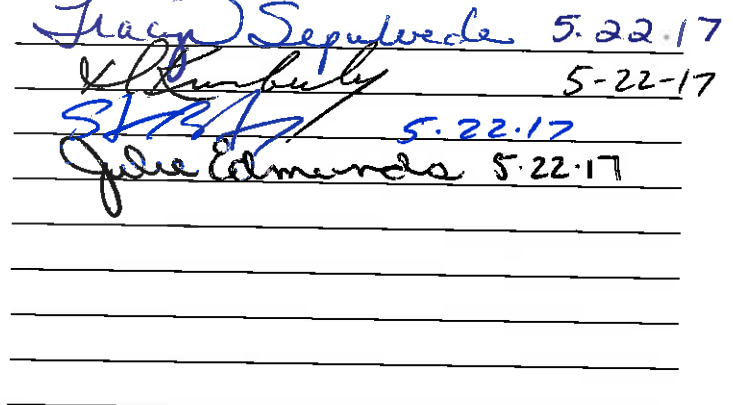 Tracy Sepulveda 5.22.17
Kimberly 5-22-17
5.22.17
Julie Edmunds 5.22.17